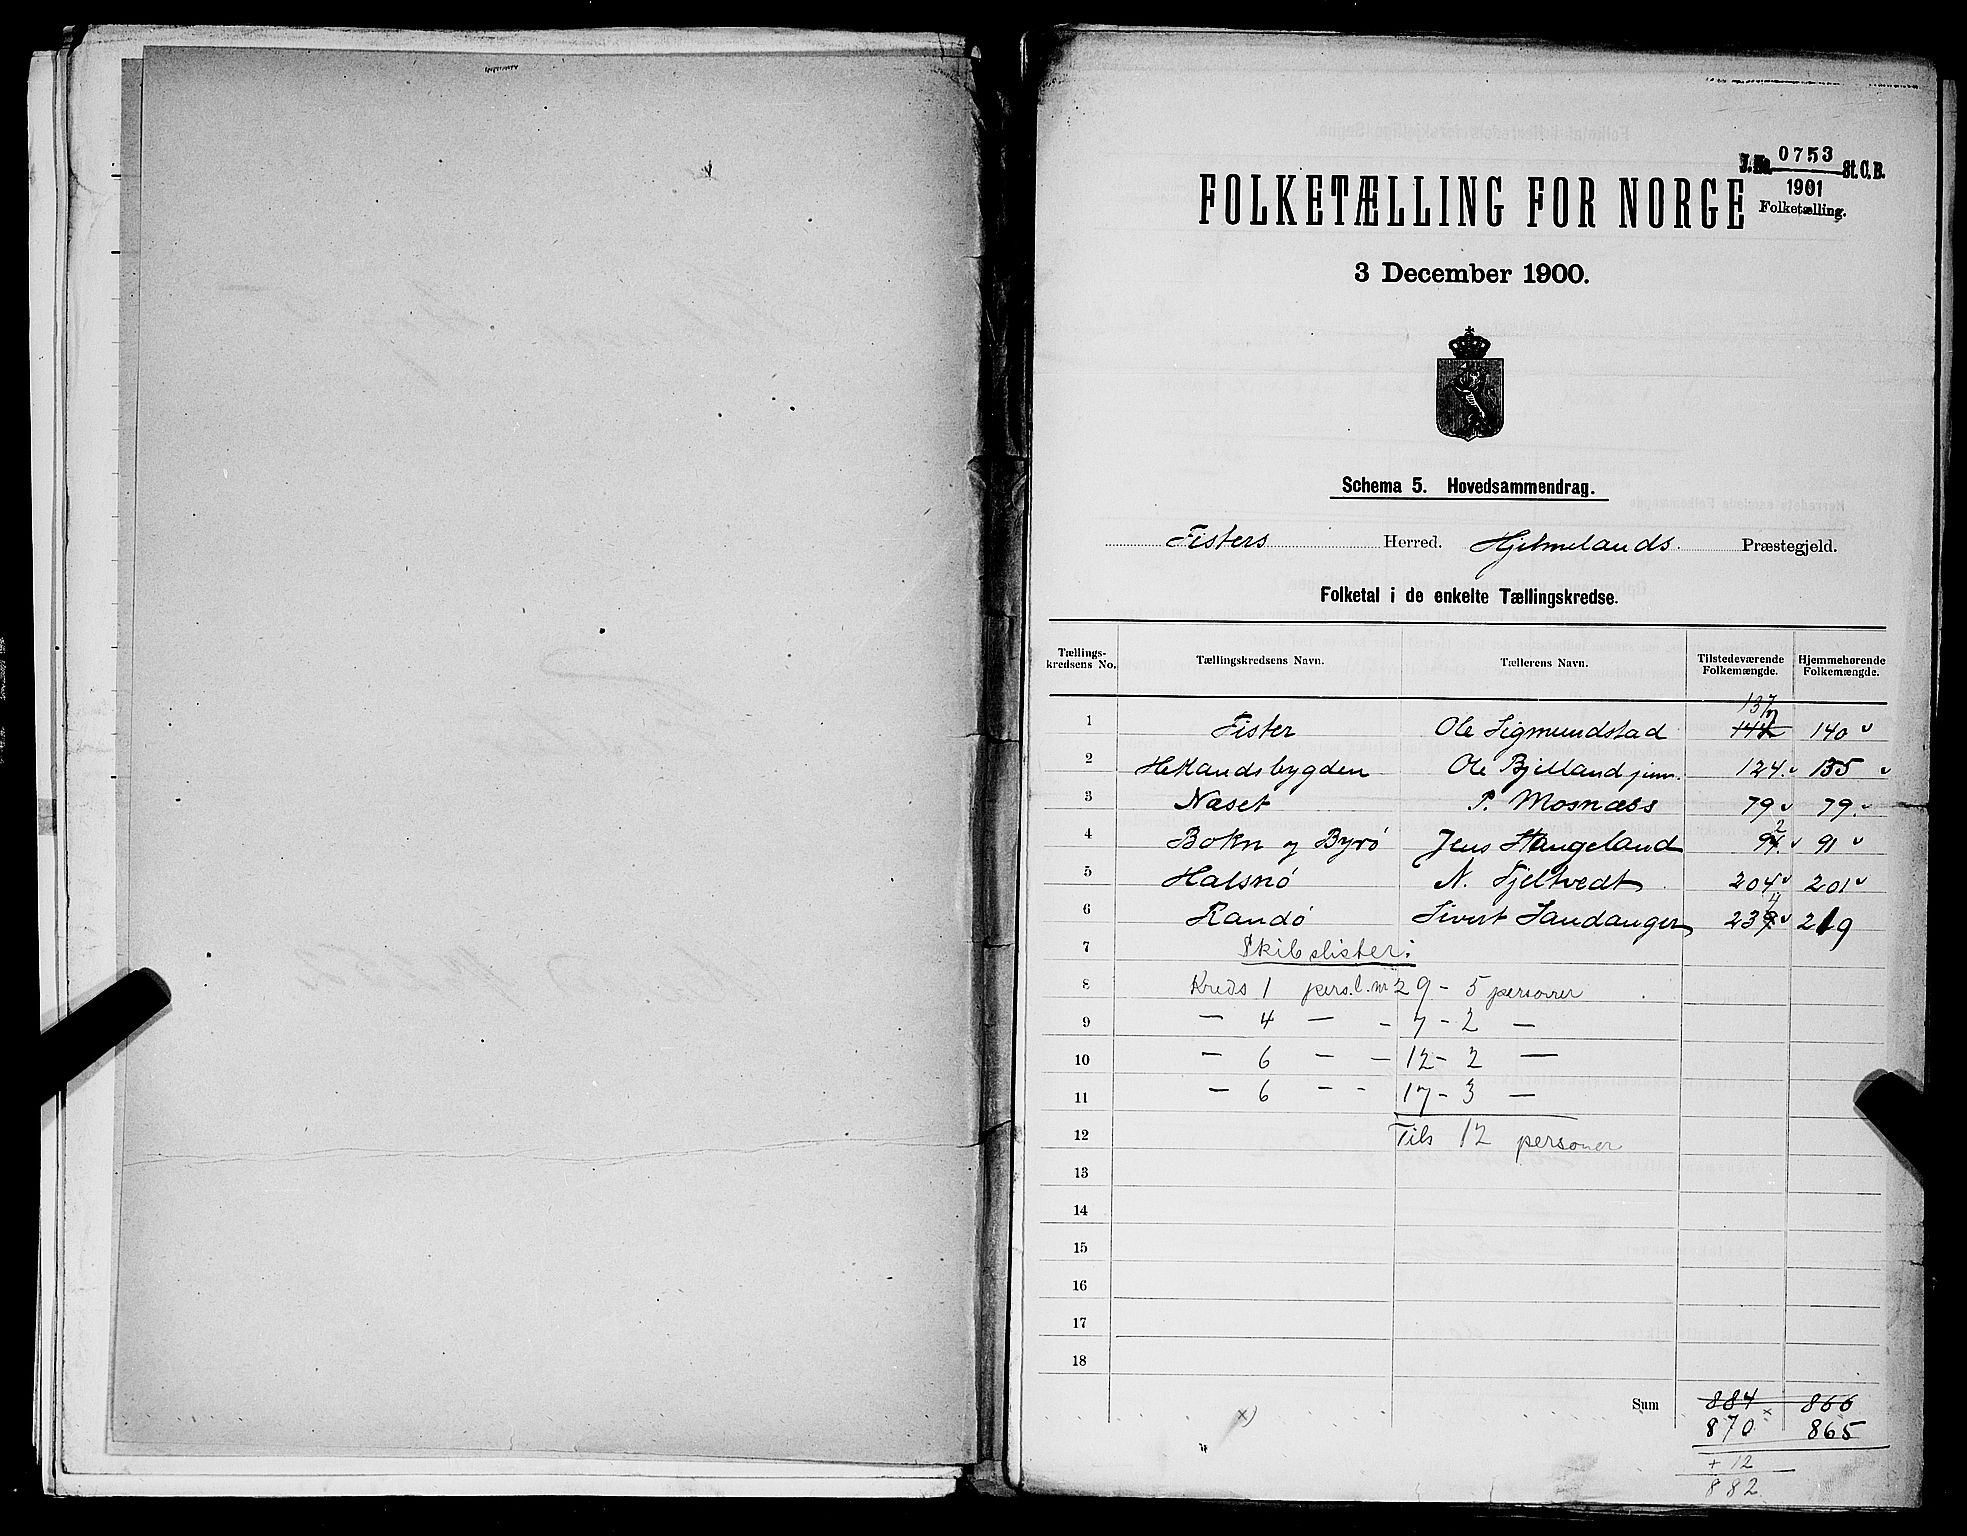 J.No. 0753 St.C.B.
1901
Folketælling.
FOLKETÆLLING FOR NORGE
3 December 1900.
Schema 5. Hovedsammendrag.
Fisters Herred. Hjelmelands Præstegjeld.
Folketal i de enkelte Tællingskredse.
Tællings-kredsens No. Tællingskredsens Navn. Tællerens Navn. Tilstedeværende Folkemængde. Hjemmehørende Folkemængde.
137
1 Fister Ole Sigmundstad 140
2 Hetlandsbygden Ole Bjelland jun. 124. 135
3 Næset P. Mosnæss 79 79.
4 Bokn og Byrø Jens Hangeland 92 91
5 Halsnø N. Fjeltvedt 204 201
6 Randø Sivert Sandanger 234 219
7 Skibslister:
8 Kreds 1 pers.l. nr 29 - 5 personer
9 — 4 — - 7 - 2 —
10 — 6 — — 12 - 2 —
11 — 6 — - 17 - 3 —
12 Tils 12 personer
13
14
15
16
17
18
Sum 884 866
x) 870 x 865
+ 12
882